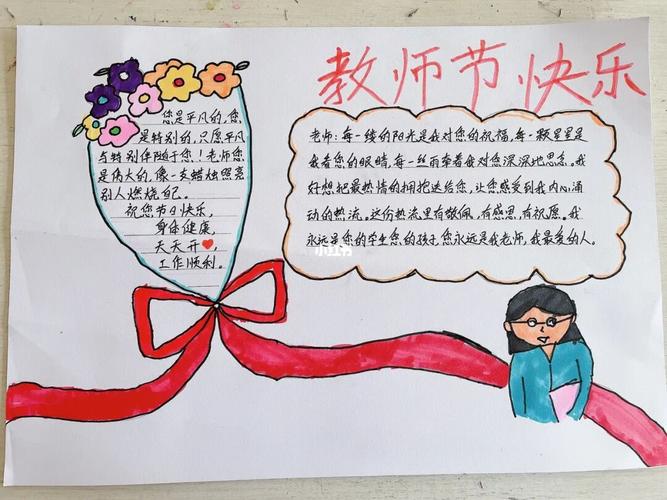 教师节快乐
您是平凡的,您
是特别的,只愿平凡
与特别伴随于您!老师您
是伟大的,像一支蜡烛照亮
别人燃烧自己。
祝您节日快乐,
身体健康,
天天开❤,
工作顺利。
老师:每一缕的阳光是我对您的祝福,每一颗星星是
我看您的眼睛,每一丝雨牵着我对您深深地思念。我
好想把最热情的拥抱送给您,让您感受到我内心涌
动的热流。这份热流里有敬佩,有感恩,有祝愿。我
永远是您的学生您的孩子,您永远是我老师,我最爱的人。
小红书